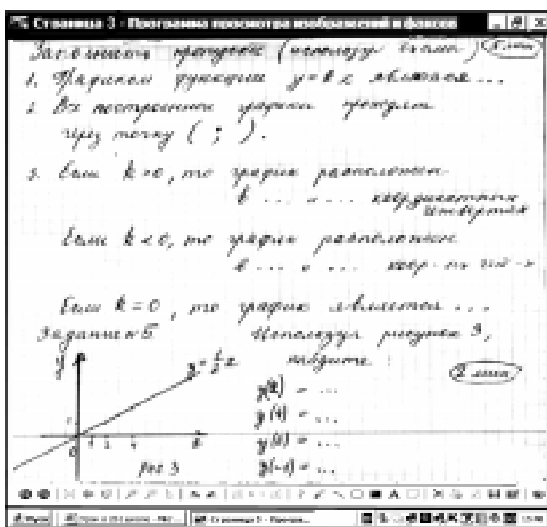 Страница 3 - Программа просмотра изображений и факсов
Заполнить пропуски (используя
1. Графиком функции y = k x является ...
2. Все построенные графики проходят
через точку ( ; ).
3. Если k>0, то график расположен
в ... и ... координатных
четвертях
Если k < 0, то график расположен
в ... и ...
Если k = 0, то график является ...
Задание №5. Используя рисунок 3,
найдите
2 мин
y
y = 1/2 x
y(2) = ...
y(4) = ...
y(0) = ...
0
x
Рис 3
Пуск
Страница 3 - Програ...